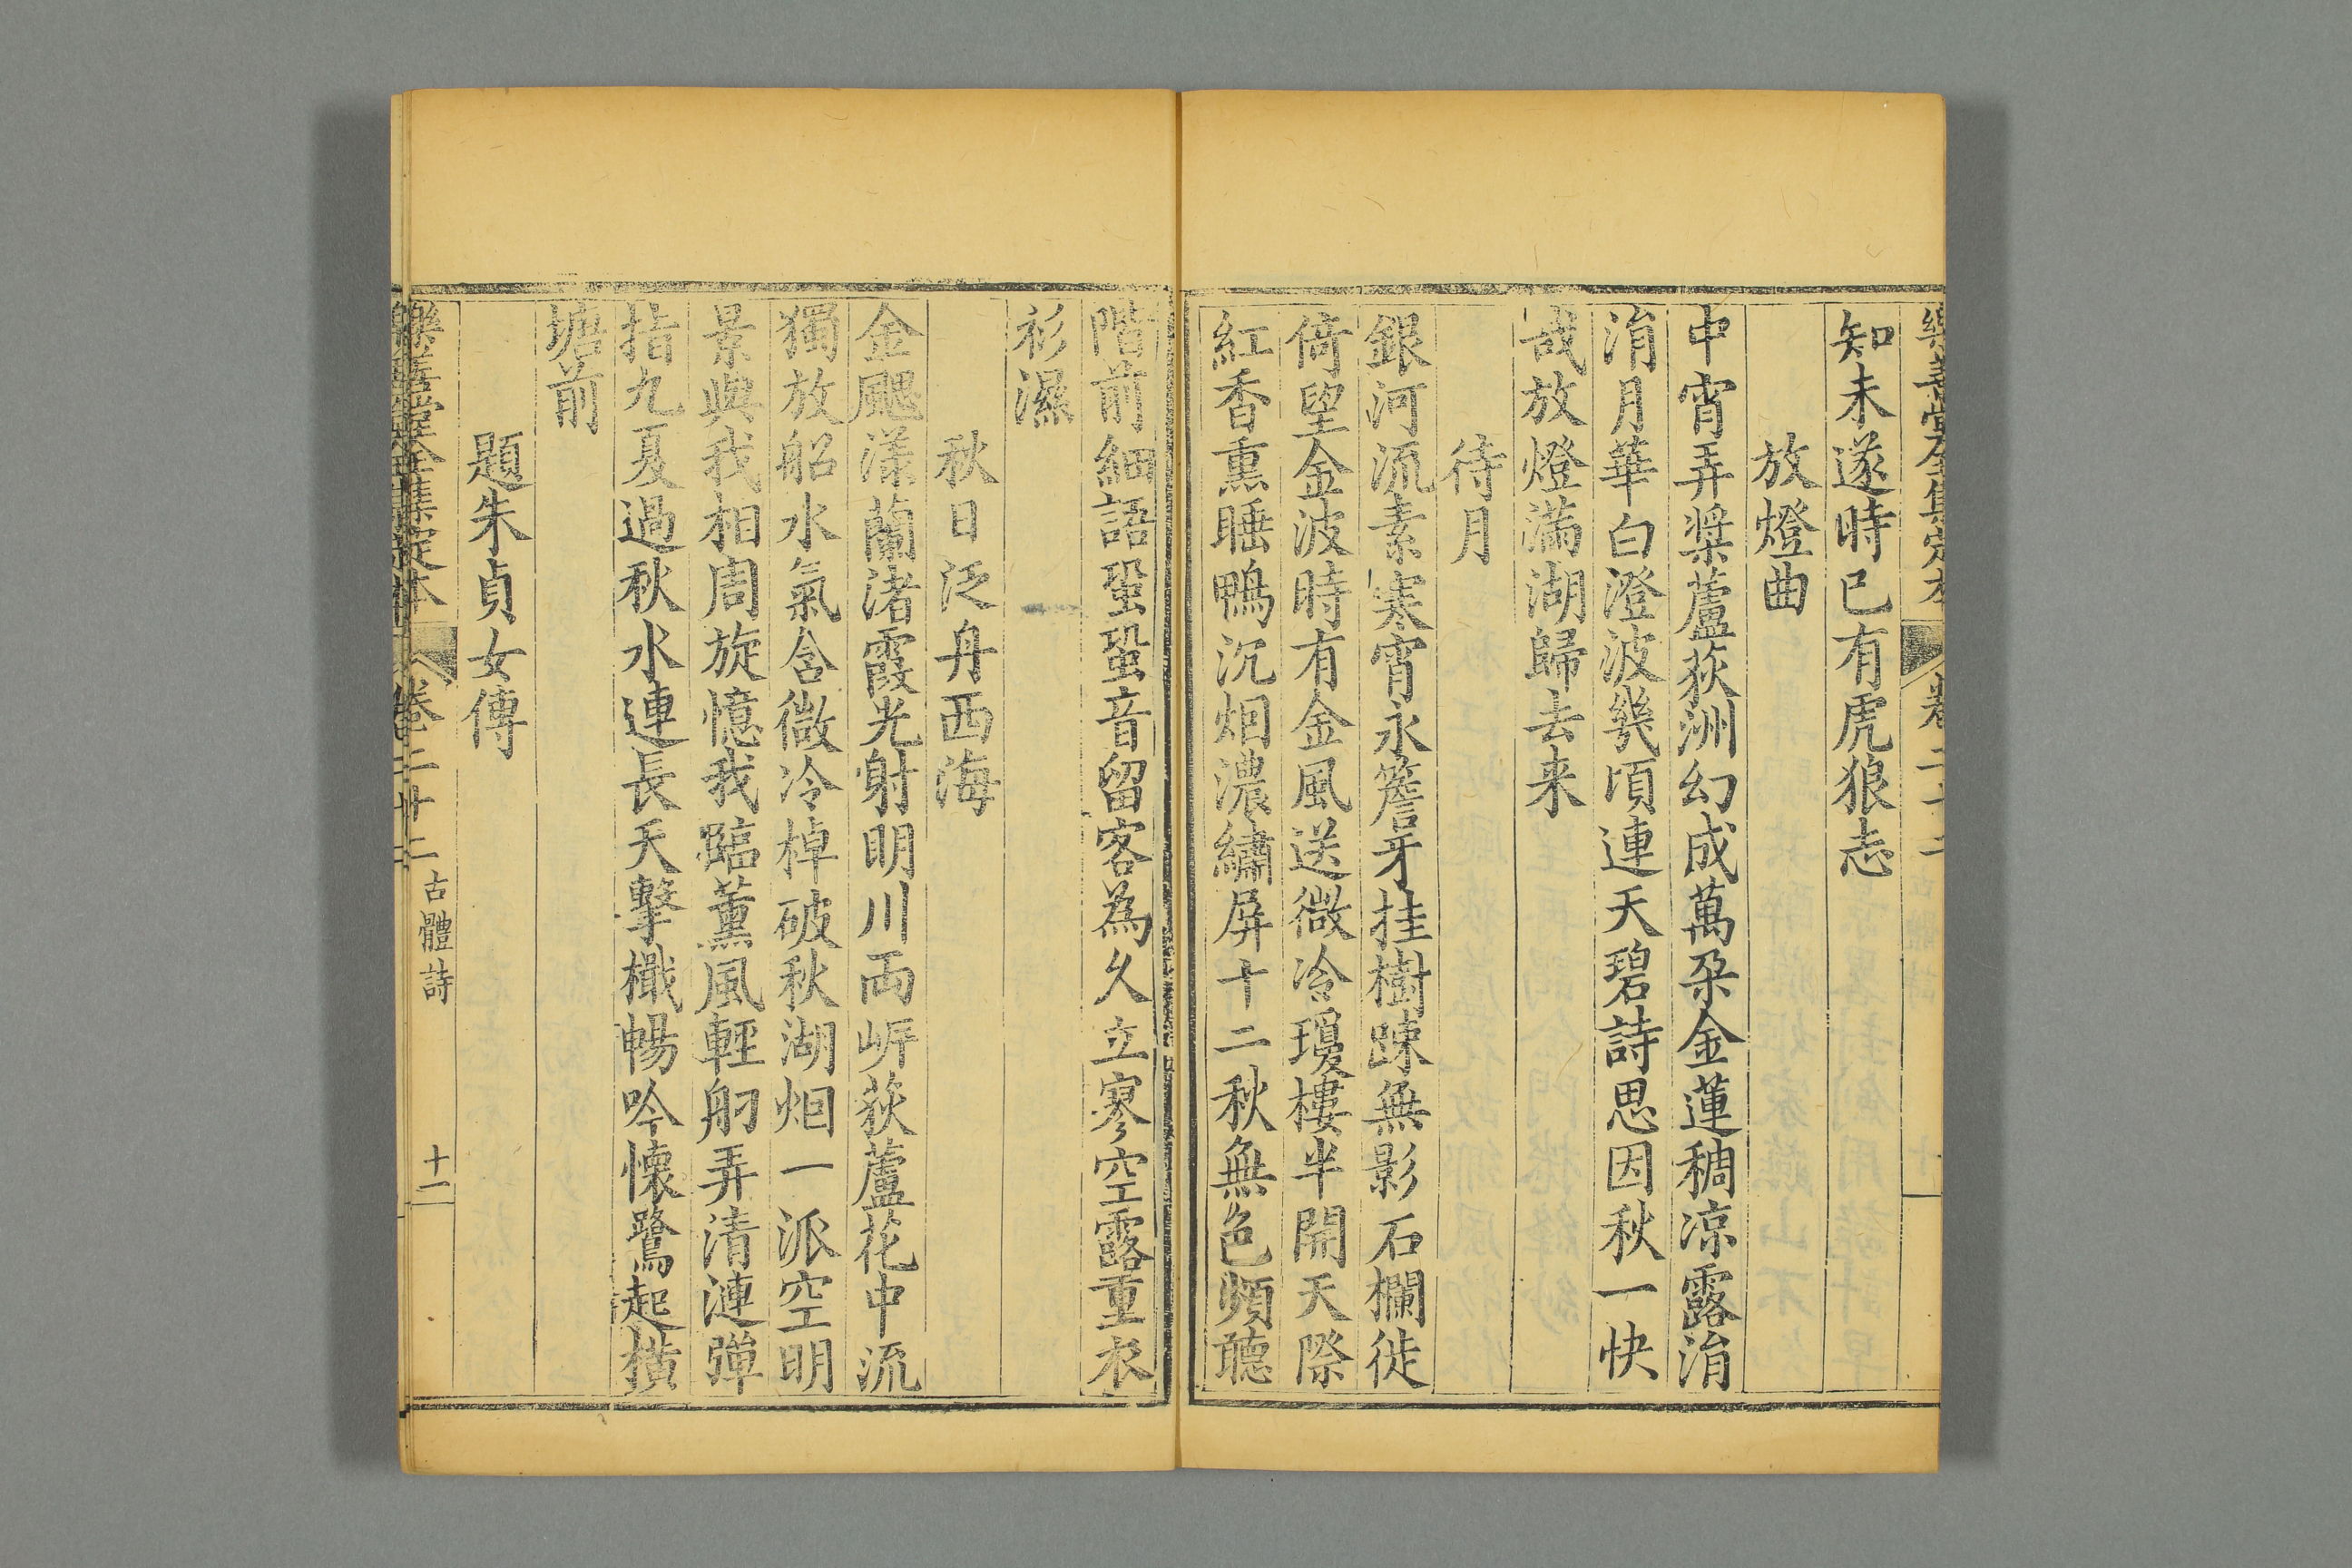 樂善堂全集定本 卷二十二 古體詩
知未遂時已有虎狼志
放燈曲
中宵弄槳蘆荻洲幻成萬朶金蓮稠凉露涓
涓月華白澄波幾頃連天碧詩思因秋一快
哉放燈滿湖歸去来
待月
銀河流素寒宵永簷牙挂樹踈無影石欄徙
倚望金波時有金風送微冷瓊樓半開天際
紅香熏睡鴨沉烟濃繡屏十二秋無色頻聽
階前細語蛩蛩音留客為久立寥空露重衣
衫濕
秋日泛舟西海
金颸漾蘭渚霞光射明川兩岍荻蘆花中流
獨放船水氣含微冷棹破秋湖烟一派空明
景與我相周旋憶我臨薰風輕舠弄清漣彈
指九夏過秋水連長天擊檝暢吟懷鷺起橫
塘前
題朱貞女傳
樂善堂全集定本 卷二十二 古體詩 十二